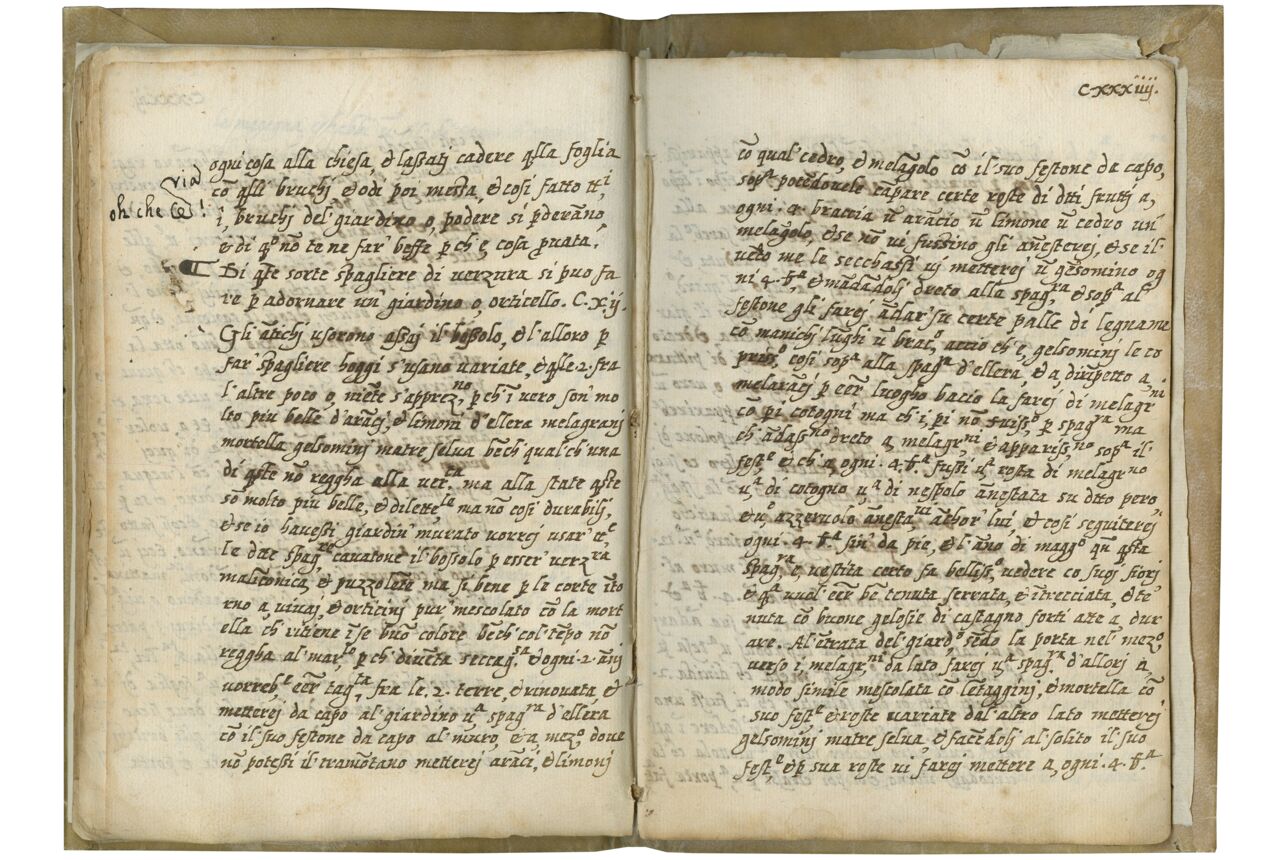 ogni cosa alla chiesa, & lassatj cadere q̃lla foglia
via
cõ q̃lli bruchj & odi poi messa, & cosi fatto tt̃i
oh che te!
i, bruchj del giardino o, podere si p̃derãno,
& di q̃º nõ te ne far' beffe p̃ ch' e, cosa p̃uata.
Di q̃te sorte spagliere di uerzura si puo fa-
re p̃ adornare un' giardino o, orticello. C. xij
Gli ãtichj usorono assaj il bossolo, & l'alloro p̃
far' spagliere hoggi s'usano uariate, & q̃lle .2. fra
l'altre poco o, niẽte s'apprezno, p̃ ch' ĩ uero son' mo
lto piu belle d'arãcj, & limonj d'ellera melagranj
mortella gelsominj matre selua bẽch' qual' ch' una
di q̃ste nõ reggha alla uer.ta ma alla state q̃ste
sõ molto piu belle, & dilette.le ma nõ cosi durabilj,
& se io hauessi giardin' murato uorrej usar' tt̃e
le dae spag.re cauatone il bossolo p̃ esser' uerz.ra
malĩconica, & puzzolẽte ma si bene p̃ le corte ĩto
rno a, uiuaj, & orticinj pur' mescolato cõ la mort
ella ch' ritiene ĩ se buõ colore bẽch' col' tẽpo nõ
reggha al mar.lo p̃ ch' diuẽta seccag.sa & ogni .2. ãnj
uorreb.e eẽr tag.ta fra le .2. terre, & rinouata, &
metterej da capo al' giardino u.a spag.ra d'ellera
cõ il suo festone da capo al' muro, & a, mez.o doue
nõ potessi il tramõtano metterej arãcj, & limonj
CXXXiiij.
cõ qual' cedro, & melãgolo cõ il suo festone da capo,
sop.a potẽdouele tapare certe roste di d̃ti fruttj a,
ogni .4. braccia ũ arãcio ũ limone ũ cedro un'
melãgolo, & se nõ ui fussino gli ãnesterej, & se il
uẽto me le seccassi uj metterej ũ gelsomino og
ni 4. b.a & mãdãdolj dreto alla spag.ra, & sop.a al'
festone gli farej ãdar' su certe palle di legname
cõ manichj lũghi ũ brac, accio ch' e, gelsominj le co
priss.o cosi sop.a alla spag.ra d'ellera, & a, dirĩpetto a,
melarãcj p̃ eẽr luogho bacio la farej di melagr.ni
cõ p̃i cotogni ma ch' i, p̃i nõ fuiss.o p̃ spag.ra ma
ch' ãdass.no dreto a, melagr.ni & appariss.no sop.a il
fest.e & ch' a, ogni .4. b.a fussi u.a rosta di melagr.no
u.a di cotogno u.a di nespolo ãnestata su d̃tto pero,
& u.o azzeruolo ãnesta.ui ãchor' lui & cosi seguiterej
ogni .4. b.a sin' da pie, & l'ãno di magg.o qñ q̃sta
spag.ra e, uestita certo fa belliss.o uedere co suoj fiorj
& q.a uuol' eẽr bẽ tenuta serrata, & ĩtrecciata, & te
nuta cõ buone gelosie di castagno forti atte a, dur
are. Al' ẽtrata del' giard.o sẽdo la porta nel' mez.o
uerso i, melagr.ni da lato farej u.a spag.ra d'allorj a,
modo simile mescolata cõ lẽtagginj, & mortella cõ
suo fest.e & roste uariate dal' altro lato metterej
gelsominj matre selua, & facẽdolj al' solito il suo
fest.e & p̃ sua roste ui farej mettere a, ogni .4. b.a